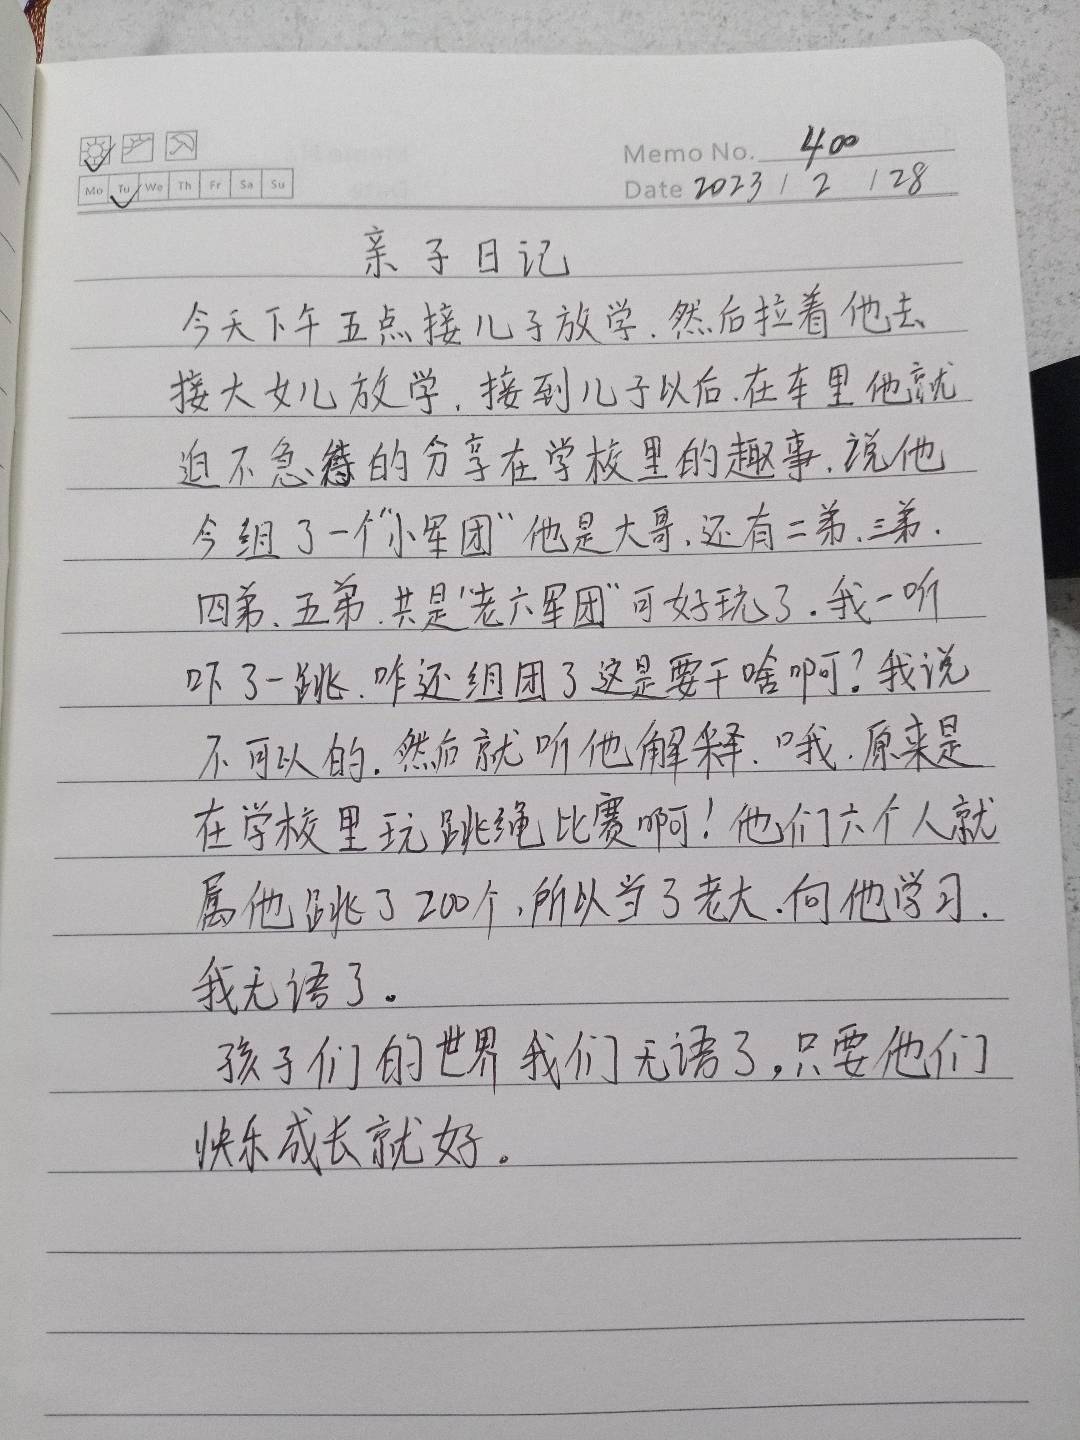 Memo No. 400
Mo Tu We Th Fr Sa Su
Date 2023 / 2 / 28
亲子日记
今天下午五点接儿子放学.然后拉着他去
接大女儿放学,接到儿子以后.在车里他就
迫不急待的分享在学校里的趣事.说他
今组了一个"小军团"他是大哥.还有二弟、三弟.
四弟、五弟.共是"老六军团"可好玩了.我一听
吓了一跳.咋还组团了这是要干啥啊?我说
不可以的.然后就听他解释.哦.原来是
在学校里玩跳绳比赛啊!他们六个人就
属他跳了200个,所以当了老大.向他学习.
我无语了。
孩子们的世界我们无语了,只要他们
快乐成长就好。